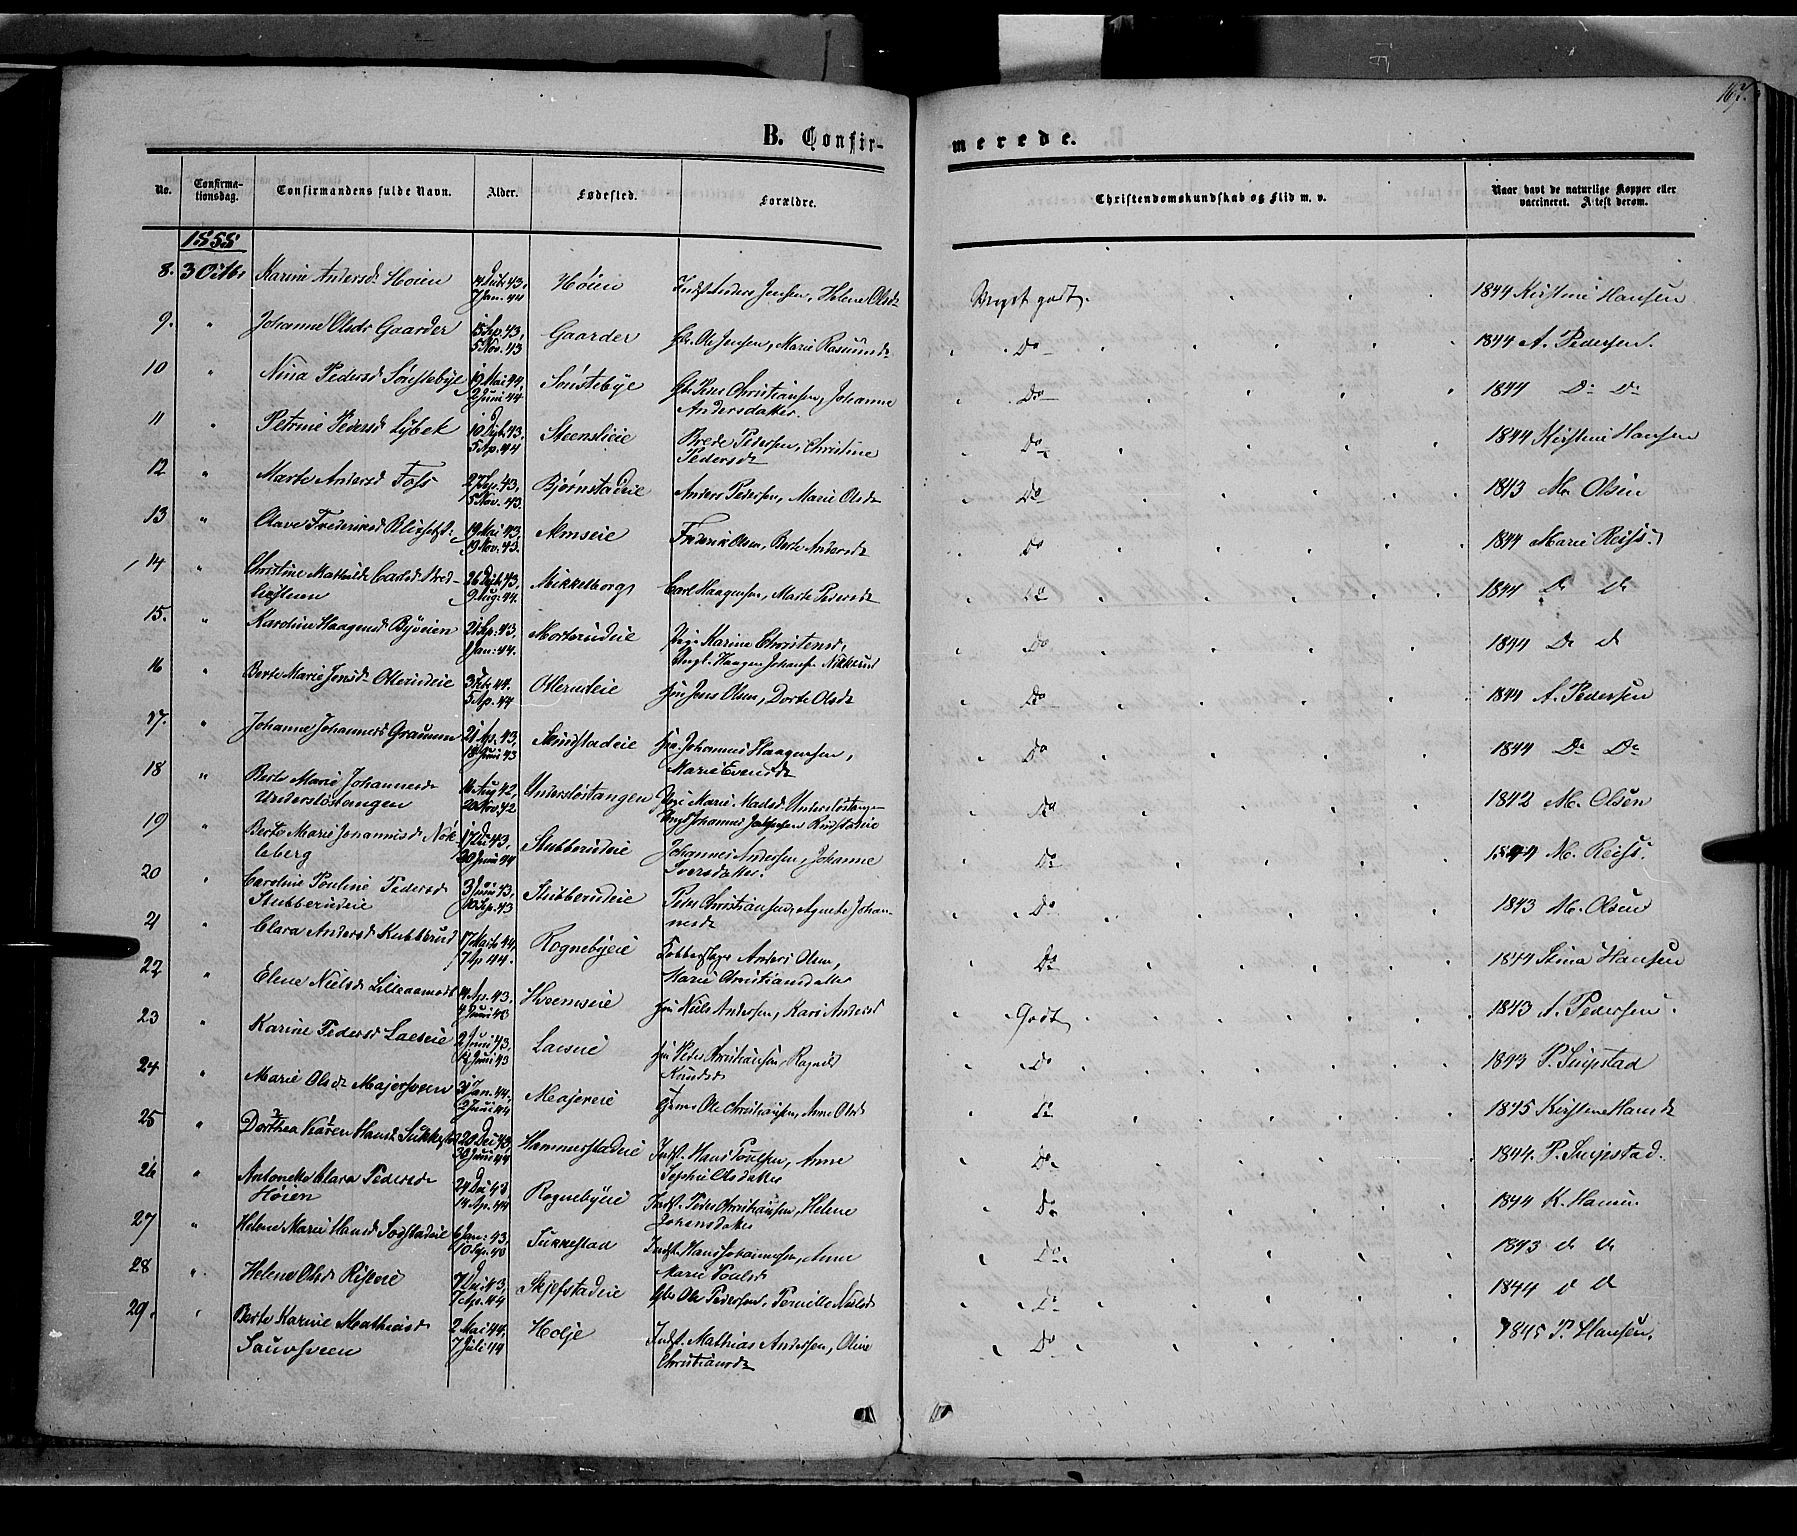 167.
B. Confirmerede.
No. Confirmationsdag. Confirmandens fulde Navn. Alder. Fødested. Forældre. Christendomskundskab og Flid m. v. Naar havt de naturlige Kopper eller vaccineret. Attest derom.
1858
8. 3 Octbr Karine Andersd. Høien 7 Jan. 44 Høien Indst. Anders Jensen, Helene Olsdr Meget godt. 1844 Kirstine Hansen
9. " Johanne Olsdr Gaarder 15 Sep. 43, 5 Nov. 43 Gaarder Gbr. Ole Jensen, Marie Rasmusdr Do 1844 A. Pedersen.
10 " Nina Pedersd Sønstebye 19 Mai 44, 2 Juni 44 Sønstebye Gbr Peder Christiansen, Johanne
Andersdatter. Do 1844 Do Do
11 " Petrine Pedersd Lybek 10 Dcb. 43, 5 Ap. 44 Steenslieie Brede Pedersen, Christine
Pedersdr Do 1844 Kirstine Hansen
12 " Marte Andersd Foss 27 Sep. 43, 5 Nov. 43. Bjørnstadeie Anders Pedersen, Marie Olsdr Do 1843 M. Olsen
13 " Olave Frederiksd 19 Mai 43, 19 Nov. 43. Almseie Frederik Olsen, Berte Andersdr Do 1844 Marie Reiss.
14 " Christine Mathilde Carlsd 26 Dcb. 43, 9 Aug. 44. Mikkelborg Carl Haagensen, Marte Pedersdr Do 1844 Do Do
15. " Karoline Haagensd Byveien 21 Sep. 43. Jan: 44. Morterudeie Pige Karine Christensd,
Ungk. Haagen Johansen Do 1844 Do Do
16 " Berte Marie Jensdr Otterudeie 3 Feb. 44. 5 Ap. 44 Otterudeie Jens Olsen, Dorte Olsdr Do 1844 A. Pedersen
17. " Johanne Johannesd Graumm 21 Ap. 43, 18 Juni 43 Johannes Haagensen,
Marie Evensdr Do 1844 Do Do
18 " Berte Marie Johannesdr
Undersløstangen 16 Aug 42, 20 Nov. 42 Undersløstangen Pige Marie Madsd Undersløstangen
Ungk Johannes Do 1842 M. Olsen
19 " Berte Marie Johannesd Nøkleberg 17 Dec 43, 30 Juni 44 Stubberudeie Johannes Andersen, Johanne
Iversdatter. Do 1844 M. Reiss.
20 " Caroline Pouline Pedersd
Stubberudeie 3 Juni 43, 10 Sep. 43 Stubberudeie Peder Christiansen, Agnete Johannesdr Do 1843 M. Olsen
21 " Clara Andersd Kubberud 17 Marts 44, 7 Ap 44. Rognebyeie Kobberslager Anders Olsen,
Marie Christiansdatter Do 1844 Stina Hansen
22 " Elene Nielsd Lilleaamodt 14 Ap. 43, 4 Juni 43 Hveemseie Niels Andersen, Kari Andersd Godt 1843 A. Pedersen.
23 " Karine Pedersd Laeseie 2 Juni 43, 12 Juni 43 Laeseie Peder Christiansen, Ragnild
Knudsdr Do 1843 P. Suipstad
24 " Marie Olsdr Majersveen 31 Jan. 44, 2 Juni 44 Majereie Ole Christiansen, Anne Olsd Do 1845 Kirstine Hansdr
25 " Dorthea Karen Hansd Sukkestad 20 Dec 43, 30 Juni 44 Hammerstadeie Indst. Hans Poulsen, Anne
Sophie Olsdatter Do 1844. P. Suipstad.
26 " Antonette Clara Pedersdr
Høien 24 Dec 43 14 Ap. 44 Rognebyeie Indst. Peder Christiansen, Helene
Johansdatter Do 1844 K. Hansen
27 " Helene Marie Hansd Sogstadeie 6 Jan: 43, 10 Sep. 43 Sukkestad Indst. Hans Johannesen, Anne
Marie Poulsd Do 1843 do do
28 " Helene Olsd Risteie 7 Dec 43, 7 Ap. 44 Skjefstadeie Gbr Ole Pedersen, Pernille Nielsd Do 1844 do do
29. " Berte Karine Mathiasd
Sauvsveen 2 Mai 44, 7 Juli 44 Hotje Indst. Mathias Andersen, Oline
Christiansdr Do 1845 P. Hansen.